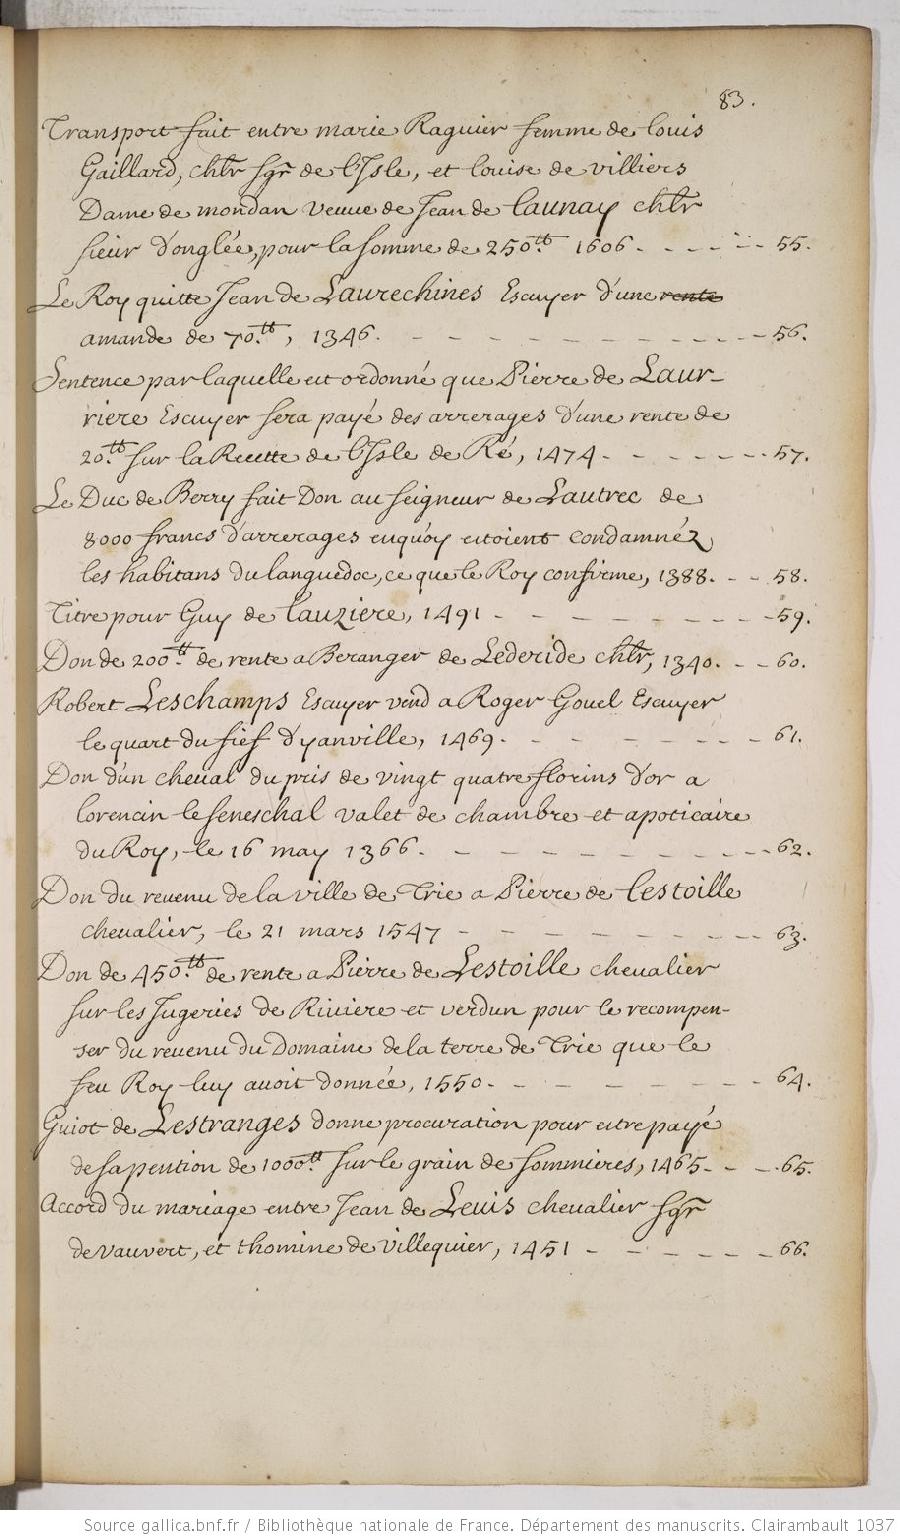 83.
Transport fait entre marie Raguier femme de louis
Gaillard, chlr sgr de l'Isle, et louise de villiers
Dame de mondan veuve de Jean de launay chlr
sieur d'onglée, pour la somme de 250.tt 1606. - - - - - 55.
Le Roy quitte Jean de Laurechines Escuyer d'une rente
amande de 70.tt, 1346. - - - - - - - - - - 56.
Sentence par laquelle est ordonné que Pierre de Laur-
riere Escuyer sera payé des arrerages d'une rente de
20.tt sur la Recette de l'Isle de Ré, 1474 - - - - - - 57.
Le Duc de Berry fait Don au seigneur de Lautrec de
8000 francs d'arrerages enquoy estoient condamnéz
les habitans du languedoc, ce que le Roy confirme, 1388. - - 58.
Titre pour Guy de lauziere, 1491 - - - - - - - - 59.
Don de 200.tt de rente a Beranger de Lederide chlr, 1340. - - 60.
Robert Leschamps Escuyer vend a Roger Gouel Escuyer
le quart du fief d'yanville, 1469. - - - - - - - 61.
Don d'un cheval du pris de vingt quatre florins d'or a
lorencin le seneschal valet de chambre et apoticaire
du Roy, le 16 may 1366. - - - - - - - - - 62.
Don du revenu de la ville de Trie a Pierre de lestoille
chevalier, le 21 mars 1547 - - - - - - - - 63.
Don de 450.tt de rente a Pierre de Lestoille chevalier
sur les Jugeries de Riviere et verdun pour le recompen-
ser du revenu du Domaine de la terre de Trie que le
feu Roy luy avoit donnée, 1550. - - - - - - - 64.
Guiot de Lestranges donne procuration pour estre payé
de sa pention de 1000.tt sur le grain de sommieres, 1465. - - - 65.
Accord du mariage entre Jean de Levis chevalier sgr
de vauvert, et thomine de villequier, 1451 - - - - - - 66.
Source gallica.bnf.fr / Bibliothèque nationale de France. Département des manuscrits. Clairambault 1037